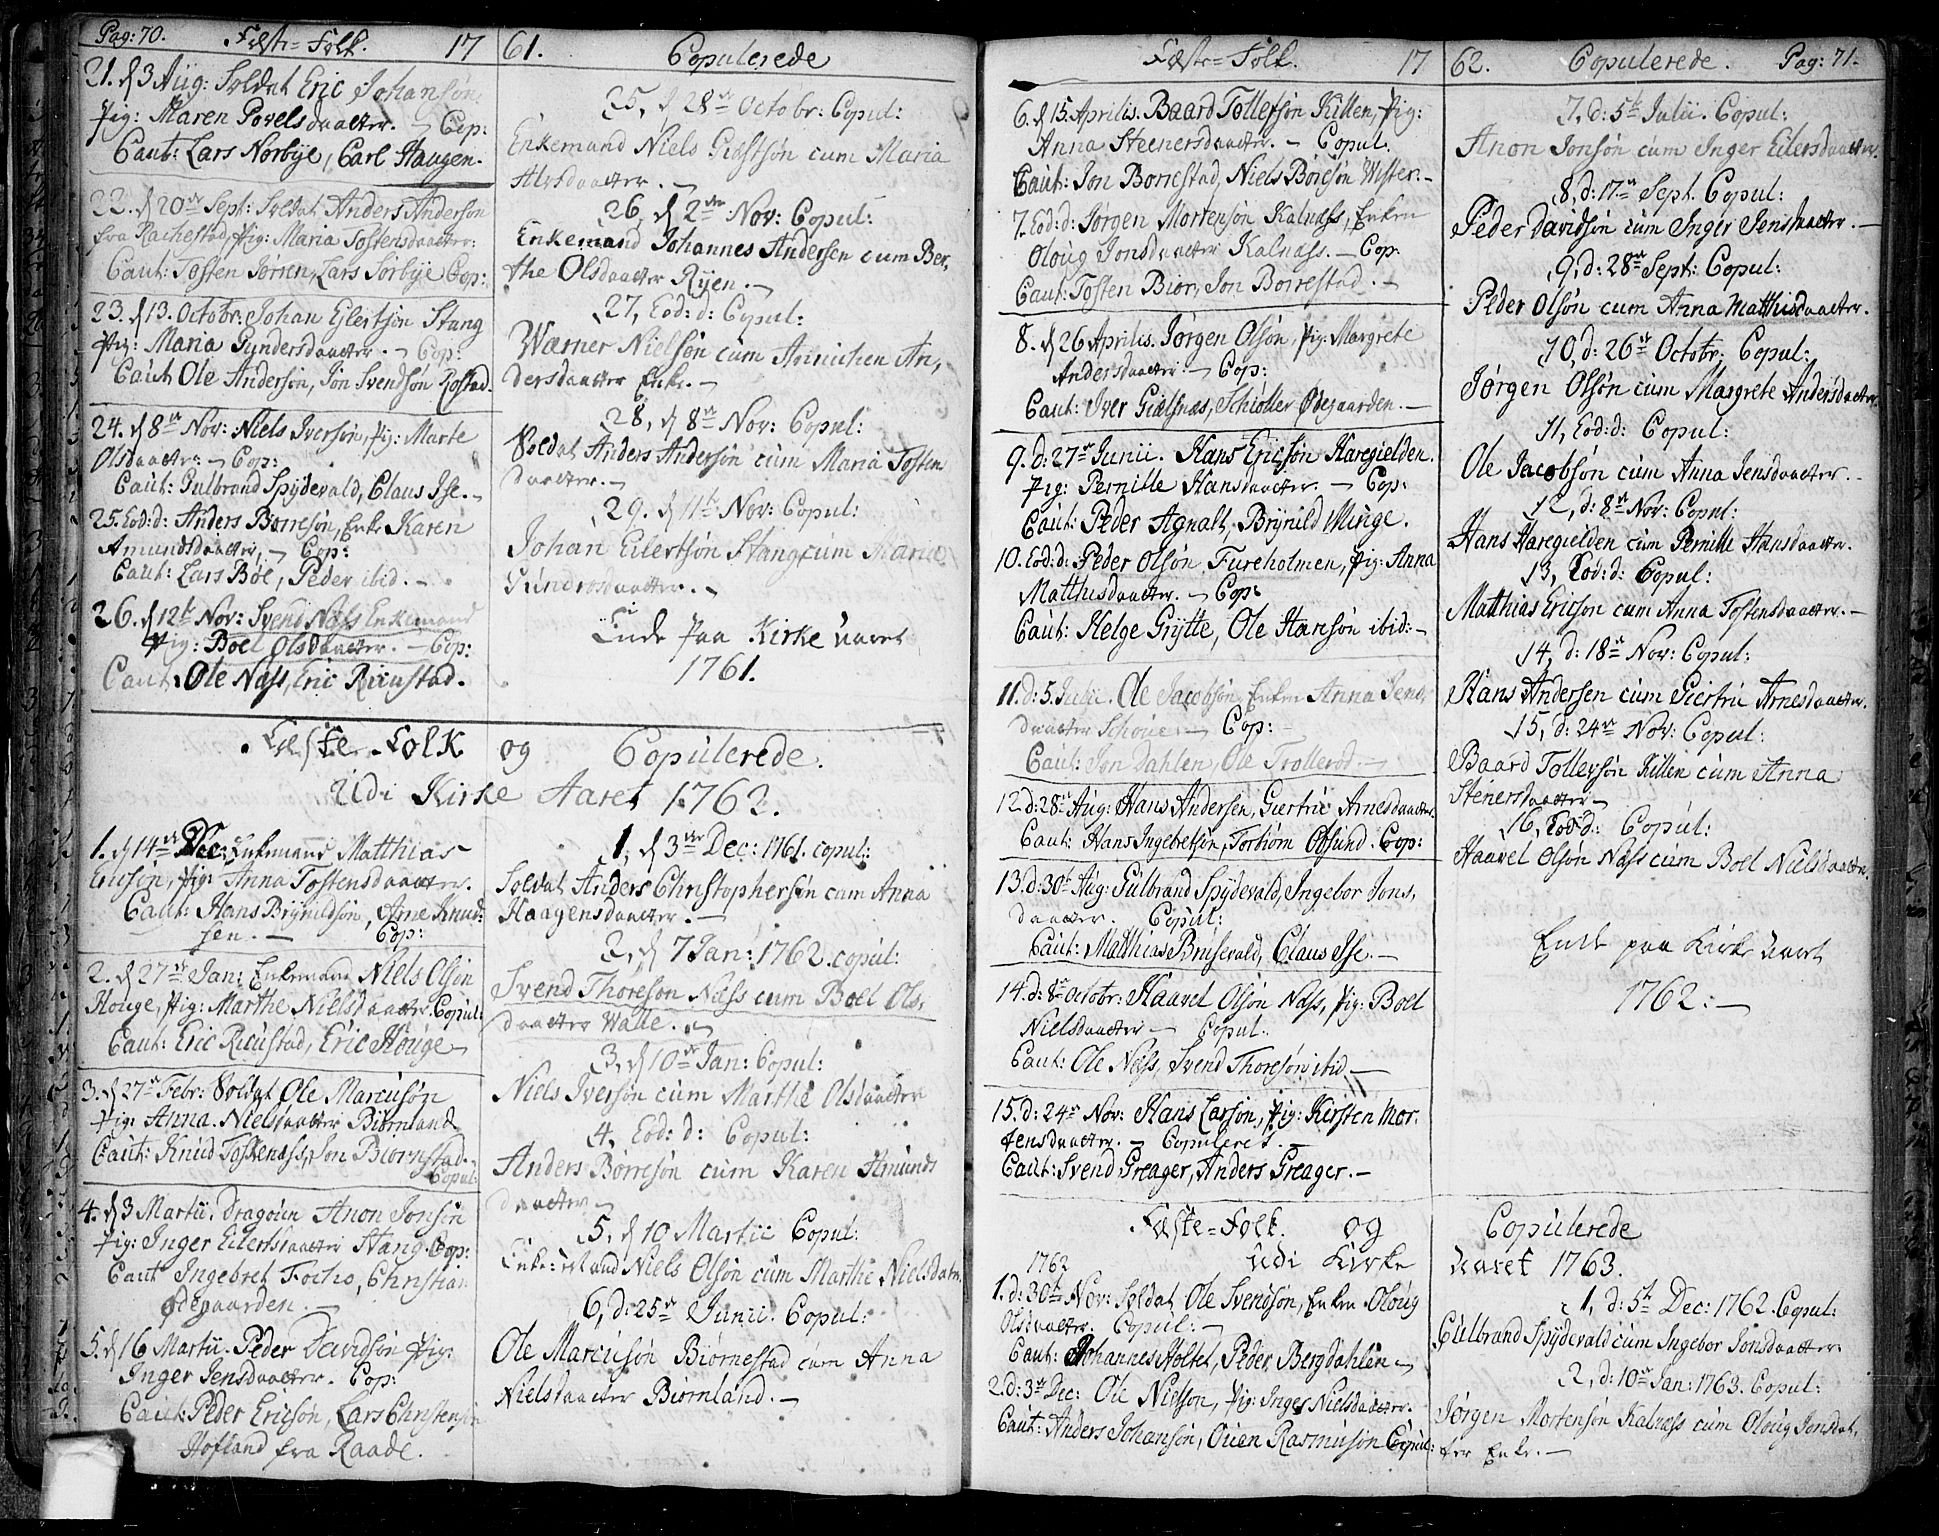 Pag: 70. Fæste=Folk. 17
21. d 3 Aug: Soldat Eric Johansøn,
Pig: Maren Povelsdaatter. — Cop:
Caut: Lars Norbye, Carl Haugen.
22. d 20de Sept: Soldat Anders Anderson
fra Rachestad, Pig: Maria Tostensdaatter:
Caut: Tosten Jørren, Lars Sørbye Cop:
23. d 13. Octobr: Johan Ejlertsøn Stang
Pig: Maria Gundersdaatter. — Cop:
Caut Ole Andersøn, Jon Svendsøn Rostad.
24. d 8de Nov: Niels Iversøn, Pig: Marte
Olsdaatter — Cop:
Caut: Gulbrand Spydevald, Claus Ise. —
25. Eod: d: Anders Børresøn, Enke Karen
Amundsdaatter, — Cop:
Caut: Lars Bøe, Peder ibid. —
26. d 12te Nov: Svend Næss Enkemand
Pig: Boel Olsdaatter. — Cop:
Caut. Ole Næss, Eric Riiustad.
61. Copulerede
25, d 28de Octobr: Copul:
Enkemand Niels Giæstsøn cum Maria
Alvsdaatter. —
26, d 2den Nov: Copul:
Enkemand Johannes Andersen cum Ber,
the Olsdaatter Ryen. —
27, Eod: d: Copul:
Wærner Nielsøn cum Annichen An,
dersdaatter Enke. —
28, d 8de Nov: Copul:
Soldat Anders Andersøn cum Maria Tosten
daatter. —
29. d 11te Nov: Copul:
Johan Eilertsøn Stang cum Maria
Gundersdaatter. —
Ende paa Kirke aaret
1761.
Fæste Folk og Copulerede
Udi Kirke Aaret 1762.
1. d 14de Dec: Enkemand Matthias
Ericsen, Pig: Anna Tostensdaatter.
Caut: Hans Brynildsøn, Arne Knud-
sen. — Cop:
2. d 27de Jan: Enkemand Niels Olsøn
Houge, Pig: Marthe Nielsdaatter. Copul:
Caut: Eric Ricustad, Eric Houge —
3. d 27de Febr: Soldat Ole Marcusøn
Pig: Anna Nielsdaatter Biørnland
Caut: Knud Tostenæss, Jon Biørnstad.
Copul:
4. d 3 Martii. Dragoun Anon Jonsøn
Pig: Inger Eilertsdaatter Stang. Cop:
Caut Ingebret Focho, Christian
Ødegaarden. —
5. d 16 Martii. Peder Davidsøn Pig:
Inger Jensdaatter. Cop:
Caut: Peder Ericsøn, Lars Christensøn
Hofland fra Raade.
1, d 3die Dec: 1761. copul:
Soldat Anders Christophersøn cum Anna
Haagensdaatter. —
2, d 7 Jan: 1762. copul:
Svend Thoresøn Næss cum Boel Ols,
daatter Walle. —
3, d 10de Jan: Copul:
Niels Iversøn cum Marthe Olsdaatter
4, Eod: d: Copul:
Anders Børresøn cum Karen Amunds
daatter —
5, d 10 Martii Copul:
Enkemand Niels Olsøn cum Marthe Nielsdatr
6, d: 25de Junii. Copul:
Ole Marcusøn Biørnestad cum Anna
Nielsdaatter Biørnland. —
Fæste=Folk. 17
6. d 15 Aprilis. Baard Tollefsøn Killen, Pig:
Anna Steenersdaatter. — Copul.
Caut: Jon Borrestad, Niels Børesøn Wister. —
7. Eod: d: Jørgen Mortensøn Kalnæss, Enken
Oloug Jonsdaatter Kalnæss. — Cop:
Caut: Tosten Biør, Jon Borrestad. —
8. d 26 Aprilis. Jørgen Olsøn, Pig: Margrete
Andersdaatter. — Cop:
Caut: Iver Gielsnæs, Schiøller Ødegaarden. —
9. d: 27de Junii. Hans Ericsøn Haregielden.
Pig: Pernille Hansdaatter. — Cop:
Caut: Peder Agnalt, Brynild Minge.
10. Eod: d: Peder Olsøn Fureholmen, Pig: Anna
Matthisdaatter. — Cop:
Caut: Helge Grytte, Ole Hansøn ibid: —
11. d: 5. Julii. Ole Jacobsøn, Enken Anna Jens,
daatter Schoue. — Cop:
Caut: Jon Dahlen, Ole Trollerød. —
12. d: 28de Aug: Hans Andersen, Giertrue Arnesdaatter.
Caut: Hans Ingebretsøn, Torbiørn Opsund. Cop:
13. d: 30te Aug: Gulbrand Spydevald, Ingebor Jons,
daatter. Copul:
Caut: Matthias Brusevald, Claus Ise. —
14. d: 8de Octobr: Haavel Olsøn Næss, Pig: Boel
Nielsdaatter — Copul.
Caut: Ole Næss, Svend Thoresøn ibid —
15. d: 24de Nov: Hans Larsøn, Pig: Kirsten Mor.
tensdaatter. — Copuleret. —
Caut: Svend Greager, Anders Greager. —
62. Copulerede. Pag: 71.
7, d: 5te Julii. Copul:
Anon Jonsøn cum Inger Eilersdaatter.
8, d: 17de Sept. Copul:
Peder Davidsøn cum Inger Jensdaatter. —
9, d: 28de Sept: Copul:
Peder Olsøn cum Anna Matthisdaatter.
10, d: 26de Octobr: Copul:
Jørgen Olsøn cum Margrete Andersdaatter
11, Eod: d: Copul:
Ole Jacobsøn cum Anna Jensdaatter.
12, d: 8de Nov: Copul:
Hans Haregielden cum Pernille Hansdaatter.
13, Eod: d: Copul:
Matthias Ericsøn cum Anna Tostensdaatter. —
14, d: 18de Nov: Copul:
Hans Andersen cum Giertrue Arnesdaatter.
15, d: 24de Nov: Copul:
Baard Tollefsøn Killen cum Anna
Stenersdaatter —
16, Eod: d: Copul:
Haavel Olsøn Næss cum Boel Nielsdaatter.
Ende paa Kirke aaret
1762: —
Fæste=Folk. og Copulerede
udi Kirke aaret 1763.
1762
1. d: 30te Nov: Soldat Ole Svendsøn, Enken Oloug
Olsdaatter. Copul: —
Caut: Johannes Holtet, Peder Bergdahlen —
2. d: 3de Dec: Ole Nielsøn, Pig: Inger Nielsdaatter.
Caut: Anders Johansøn, Ouen Rasmusøn Copul:
1, d: 5te Dec: 1762. Copul:
Gulbrand Spydevald cum Ingebor Jonsdaatter
2, d: 10de Jan: 1763. Copul:
Jørgen Mortensøn Kalnæss cum Oloug Jonsdat,
ter Enke. —